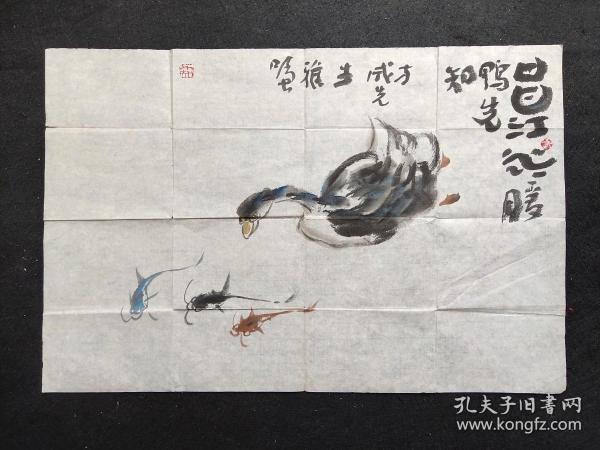 昌江水暖
鸭先
知
方
成先
生
雅
孔夫子旧书网
www.kongfz.com